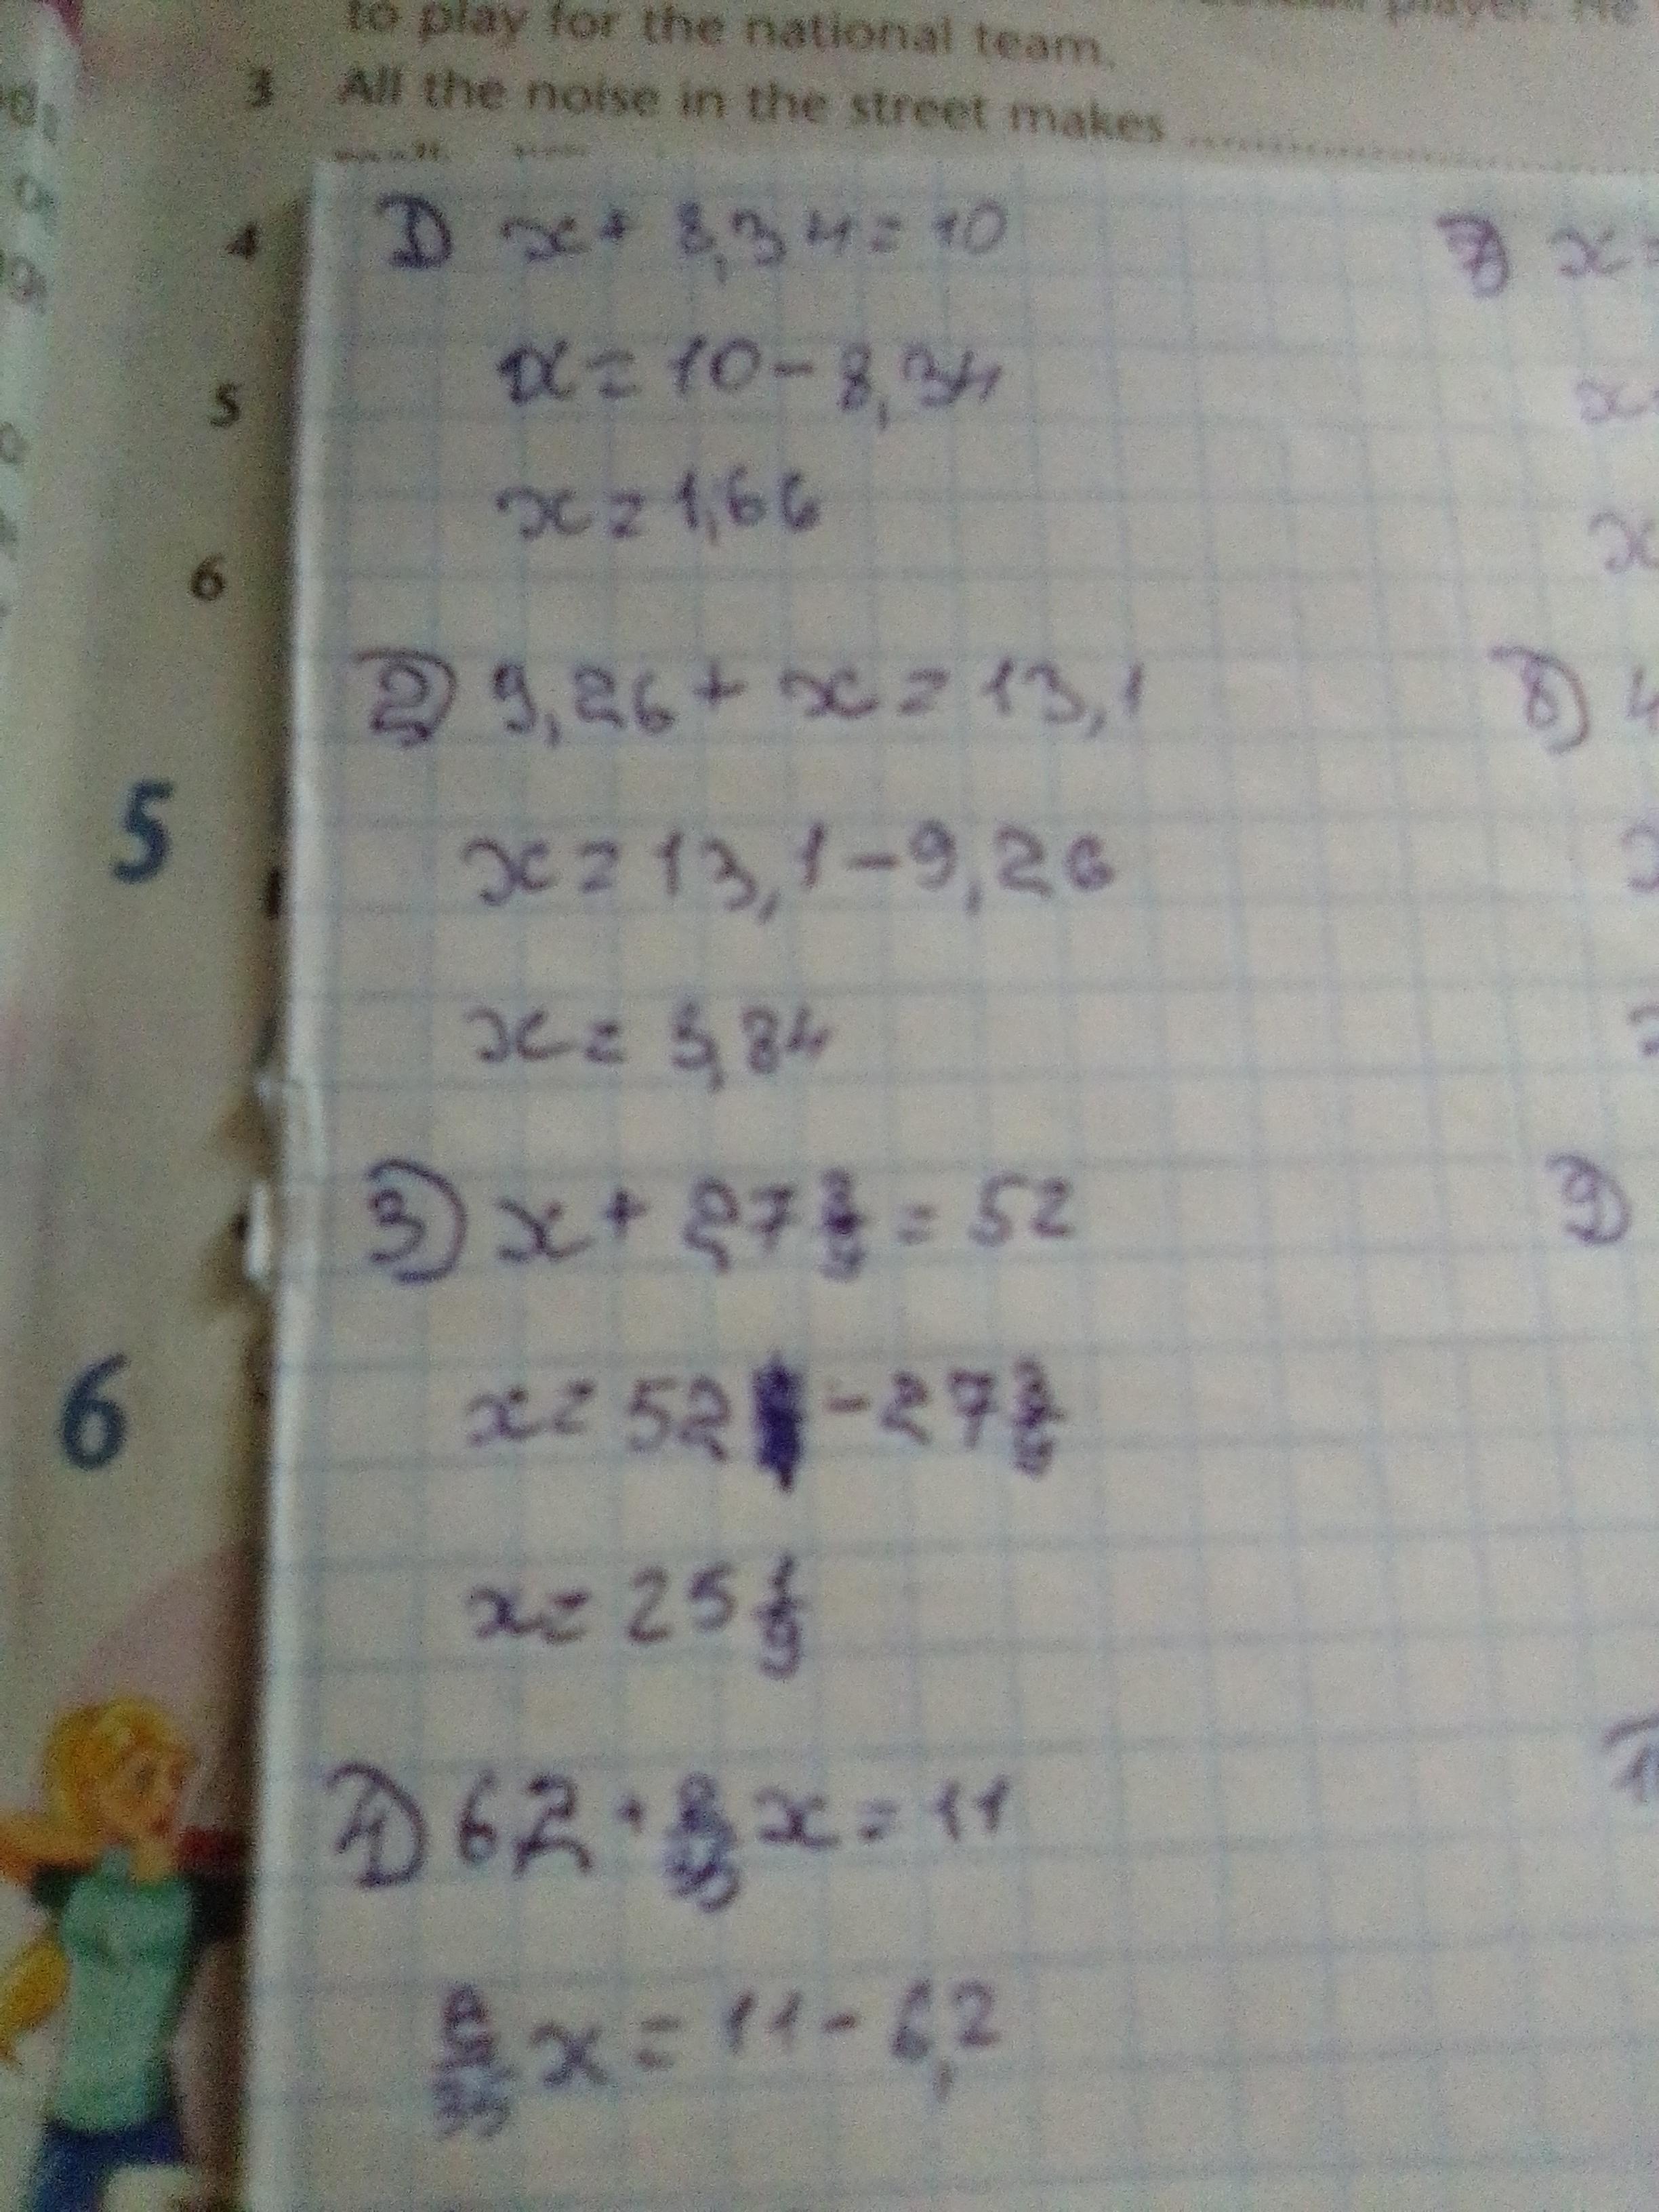 to play for the national team.
3 All the noise in the street makes
4
5
6
5
6
1) x + 8,34 = 10
x = 10 - 8,34
x = 1,66
2) 9,26 + x = 13,1
x = 13,1 - 9,26
x = 3,84
3) x + 27 = 52
x = 52 - 27
x = 25
4) 62 + x = 11
x = 11 - 6,2
7) x =
x
x
8) 4
9)